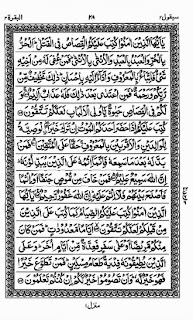 سيقول ٢ ٢٨ البقرة ٢
يٰۤاَيُّهَا الَّذِيْنَ اٰمَنُوْا كُتِبَ عَلَيْكُمُ الْقِصَاصُ فِي الْقَتْلٰى اَلْحُرُّ
بِالْحُرِّ وَالْعَبْدُ بِالْعَبْدِ وَالْاُنْثٰى بِالْاُنْثٰى فَمَنْ عُفِيَ لَهٗ مِنْ اَخِيْهِ
شَيْءٌ فَاتِّبَاعٌۢ بِالْمَعْرُوْفِ وَاَدَآءٌ اِلَيْهِ بِاِحْسَانٍ ذٰلِكَ تَخْفِيْفٌ مِّنْ
رَّبِّكُمْ وَرَحْمَةٌ فَمَنِ اعْتَدٰى بَعْدَ ذٰلِكَ فَلَهٗ عَذَابٌ اَلِيْمٌ وَ
لَكُمْ فِي الْقِصَاصِ حَيٰوةٌ يّٰۤاُولِي الْاَلْبَابِ لَعَلَّكُمْ تَتَّقُوْنَ
كُتِبَ عَلَيْكُمْ اِذَا حَضَرَ اَحَدَكُمُ الْمَوْتُ اِنْ تَرَكَ خَيْرَا ۨالْوَصِيَّةُ
لِلْوَالِدَيْنِ وَالْاَقْرَبِيْنَ بِالْمَعْرُوْفِ حَقًّا عَلَى الْمُتَّقِيْنَ فَمَنْۢ
بَدَّلَهٗ بَعْدَ مَا سَمِعَهٗ فَاِنَّمَاۤ اِثْمُهٗ عَلَى الَّذِيْنَ يُبَدِّلُوْنَهٗ اِنَّ
اللّٰهَ سَمِيْعٌ عَلِيْمٌ فَمَنْ خَافَ مِنْ مُّوْصٍ جَنَفًا اَوْ اِثْمًا
فَاَصْلَحَ بَيْنَهُمْ فَلَاۤ اِثْمَ عَلَيْهِ اِنَّ اللّٰهَ غَفُوْرٌ رَّحِيْمٌ يٰۤاَيُّهَا
الَّذِيْنَ اٰمَنُوْا كُتِبَ عَلَيْكُمُ الصِّيَامُ كَمَا كُتِبَ عَلَى الَّذِيْنَ
مِنْ قَبْلِكُمْ لَعَلَّكُمْ تَتَّقُوْنَ اَيَّامًا مَّعْدُوْدٰتٍ فَمَنْ كَانَ
مِنْكُمْ مَّرِيْضًا اَوْ عَلٰى سَفَرٍ فَعِدَّةٌ مِّنْ اَيَّامٍ اُخَرَ وَعَلَى
الَّذِيْنَ يُطِيْقُوْنَهٗ فِدْيَةٌ طَعَامُ مِسْكِيْنٍ فَمَنْ تَطَوَّعَ خَيْرًا
فَهُوَ خَيْرٌ لَّهٗ وَاَنْ تَصُوْمُوْا خَيْرٌ لَّكُمْ اِنْ كُنْتُمْ تَعْلَمُوْنَ
منزل ١